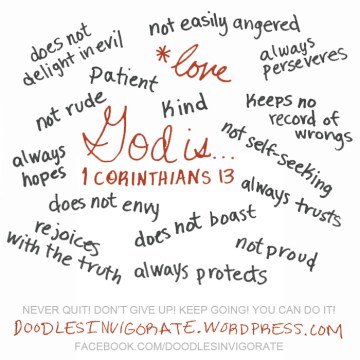 does not
delight in evil
not easily angered
*love
always
perseveres
Patient
not rude
Kind
keeps no
record of
wrongs
God is...
1 CORINTHIANS 13
not self-seeking
always
hopes
always trusts
does not envy
does not boast
rejoices
with the truth
not proud
always protects
NEVER QUIT! DON'T GIVE UP! KEEP GOING! YOU CAN DO IT!
DOODLESINVIGORATE.WORDPRESS.COM
FACEBOOK.COM/DOODLESINVIGORATE